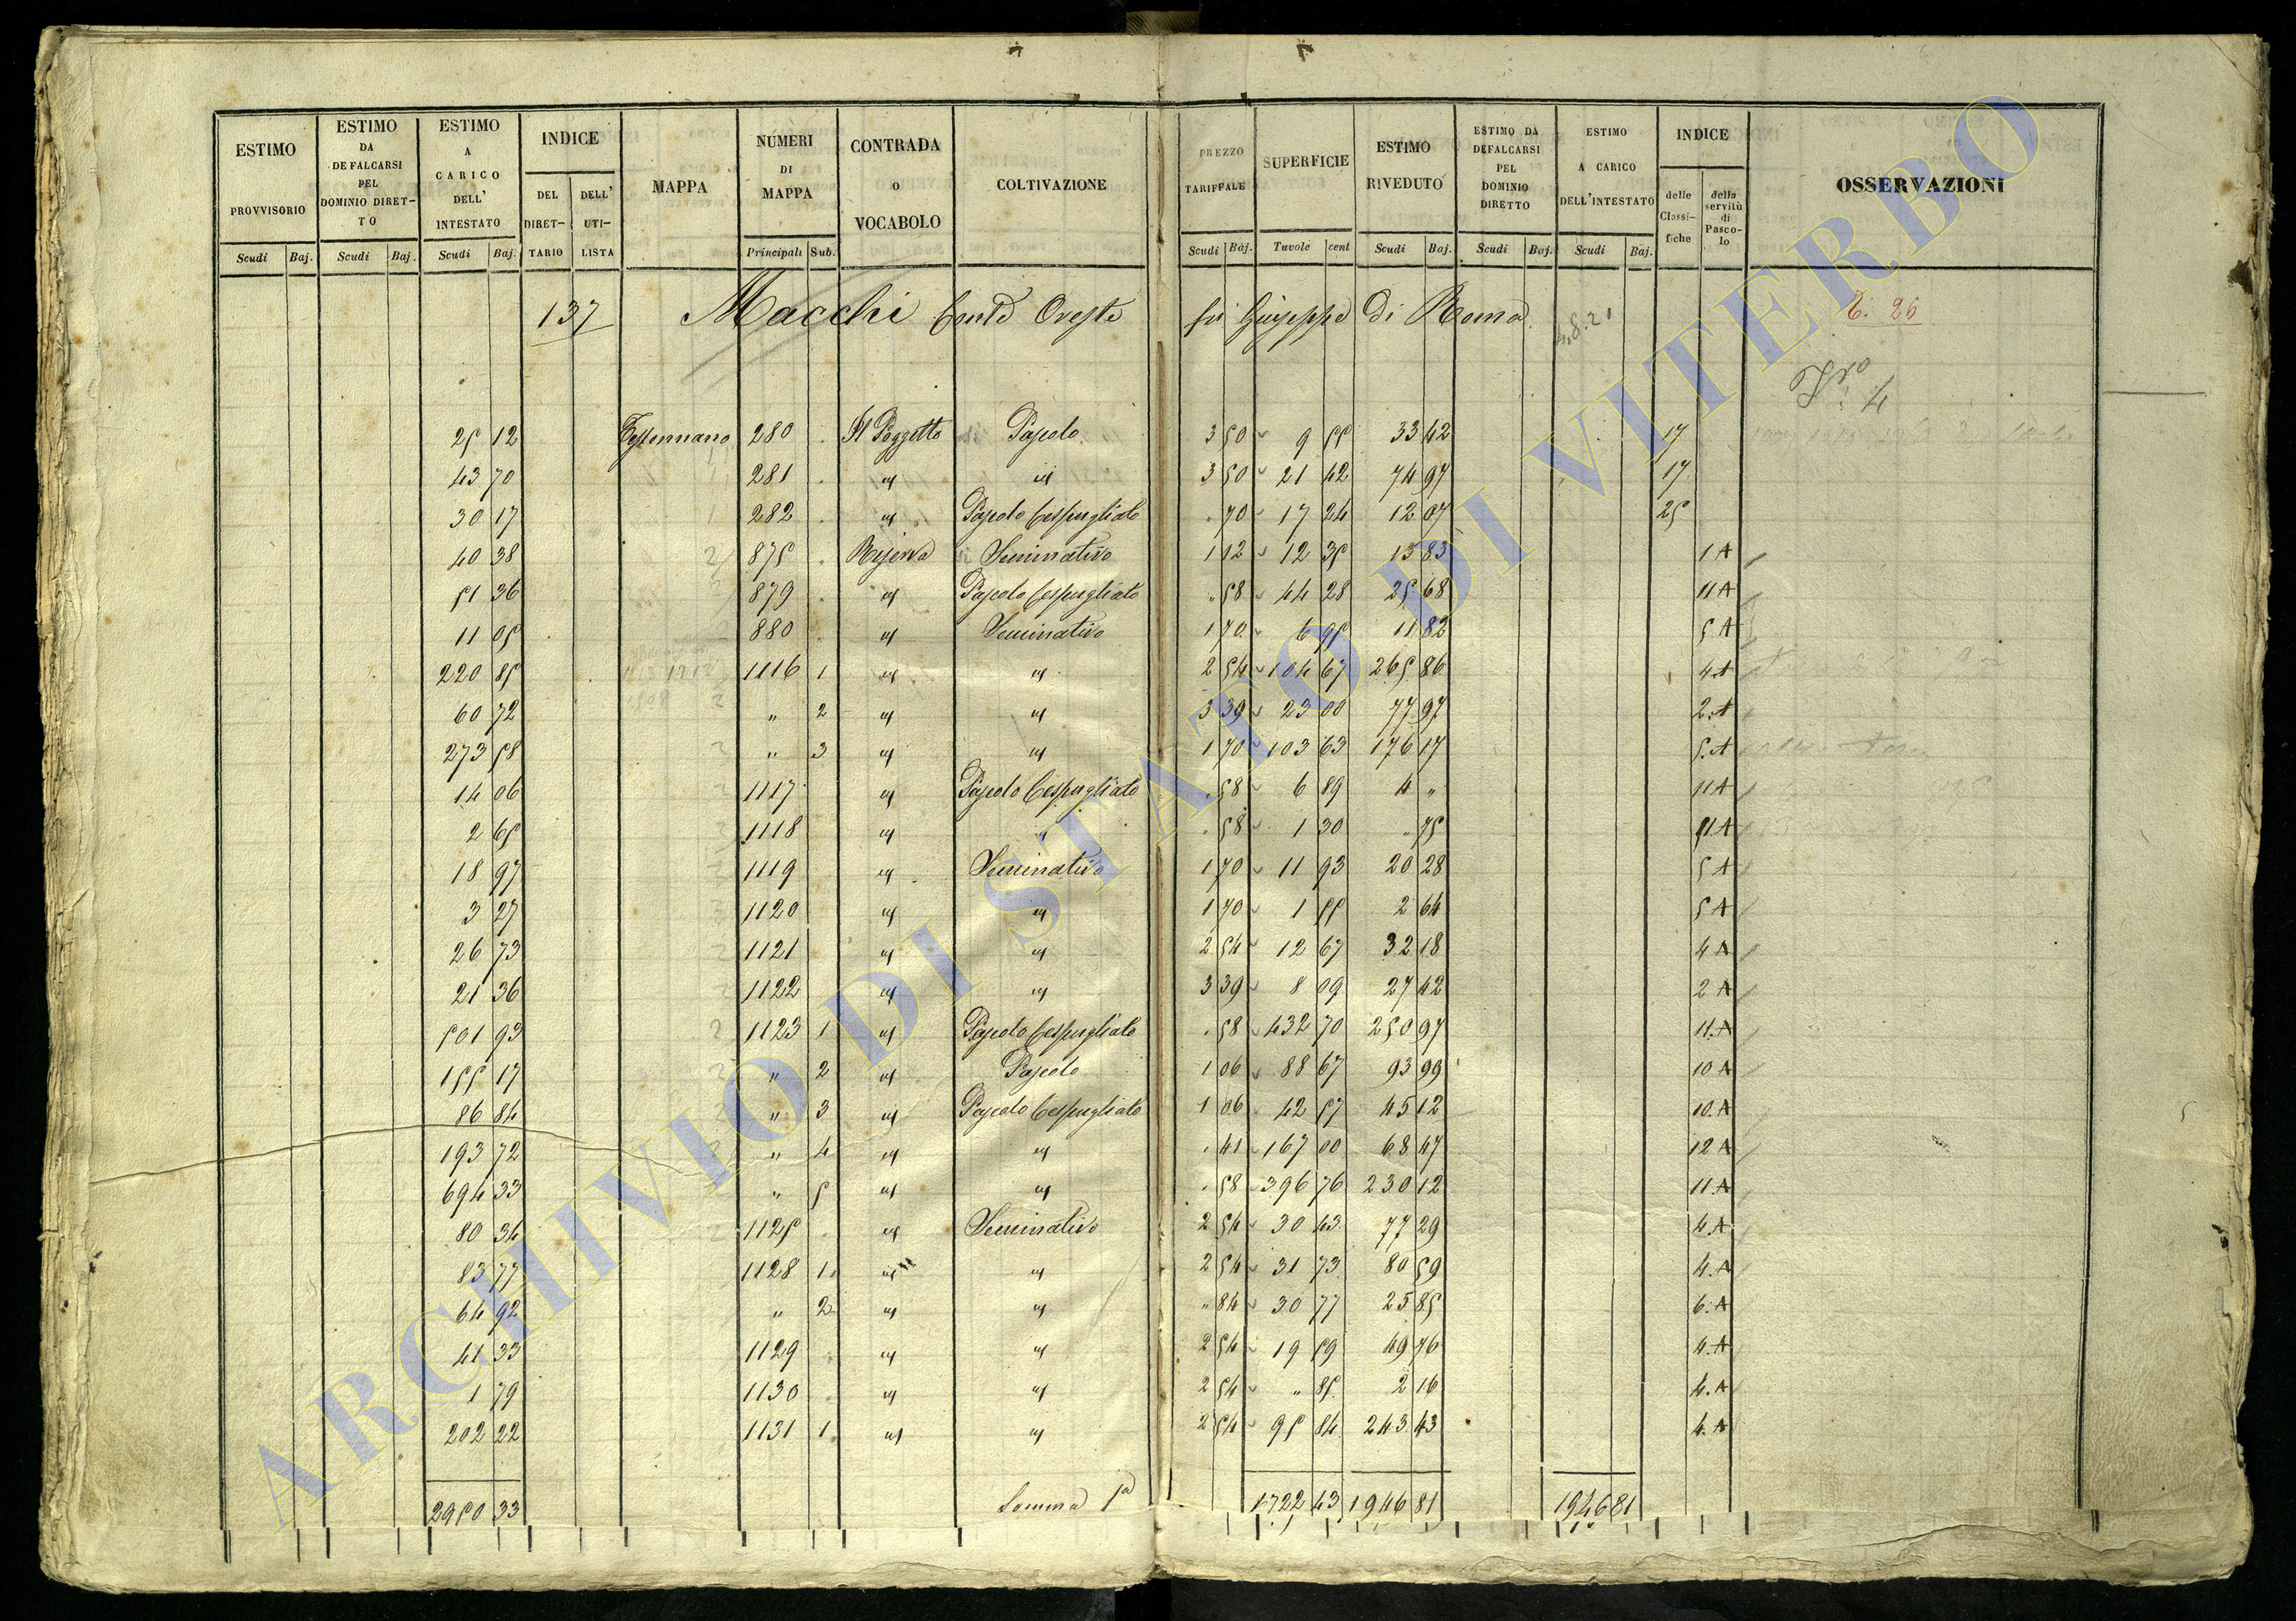 ESTIMO PROVVISORIO Scudi Baj.
ESTIMO DA DEFALCARSI PEL DOMINIO DIRET-TO Scudi Baj.
ESTIMO A CARICO DELL' INTESTATO Scudi Baj.
INDICE DEL DIRET-TARIO DELL' UTI-LISTA
MAPPA
NUMERI DI MAPPA Principali Sub.
CONTRADA O VOCABOLO
COLTIVAZIONE
PREZZO TARIFFALE Scudi Baj.
SUPERFICIE Tavole cent
ESTIMO RIVEDUTO Scudi Baj.
ESTIMO DA DEFALCARSI PEL DOMINIO DIRETTO Scudi Baj.
ESTIMO A CARICO DELL'INTESTATO Scudi Baj.
INDICE delle Classi-fiche della servitù di Pasco-lo
OSSERVAZIONI
137 Macchi Conte Oreste fu Giuseppe di Roma 26
4
25 12 280 Il Poggetto Pascolo 3 50 9 55 33 42 17
43 70 281 " " 3 50 21 42 74 97 17
30 17 282 " Pascolo Cespugliato . 70 17 24 12 07 25
40 38 875 Riserva Seminativo 1 12 12 35 13 83 1 A
51 36 879 " Pascolo Cespugliato " 58 44 28 25 68 11 A
11 05 880 " Seminativo 1 70 6 95 11 82 5 A
220 85 1116 1 " " 2 54 104 67 265 86 4 A
60 72 " 2 " " 3 39 23 00 77 97 2 A
273 58 " 3 " " 1 70 103 63 176 17 5 A
14 06 1117 " Pascolo Cespugliato . 58 6 89 4 " 11 A
2 65 1118 " " . 58 1 30 " 75 11 A
18 97 1119 " Seminativo 1 70 11 93 20 28 5 A
3 27 1120 " " 1 70 1 55 2 64 5 A
26 73 1121 " " 2 54 12 67 32 18 4 A
21 36 1122 " " 3 39 8 09 27 42 2 A
501 93 1123 1 " Pascolo Cespugliato . 58 432 70 250 97 11. A
155 17 " 2 " Pascolo 1 06 88 67 93 99 10 A
86 84 " 3 " Pascolo Cespugliato 1 06 42 57 45 12 10. A
193 72 " 4 " " . 41 167 00 68 47 12 A
694 33 " 5 " " . 58 396 76 230 12 11. A
80 34 1125 " Seminativo 2 54 30 43 77 29 4. A
83 77 1128 1 " " 2 54 31 73 80 59 4. A
64 92 " 2 " " " 84 30 77 25 85 6. A
41 33 1129 " " 2 54 19 59 49 76 4. A
1 79 1130 " " 2 54 " 85 2 16 4. A
202 22 1131 1 " " 2 54 95 84 243 43 4. A
2950 33 Somma 1722 43 1946 81 1946 81
ARCHIVIO DI STATO DI VITERBO